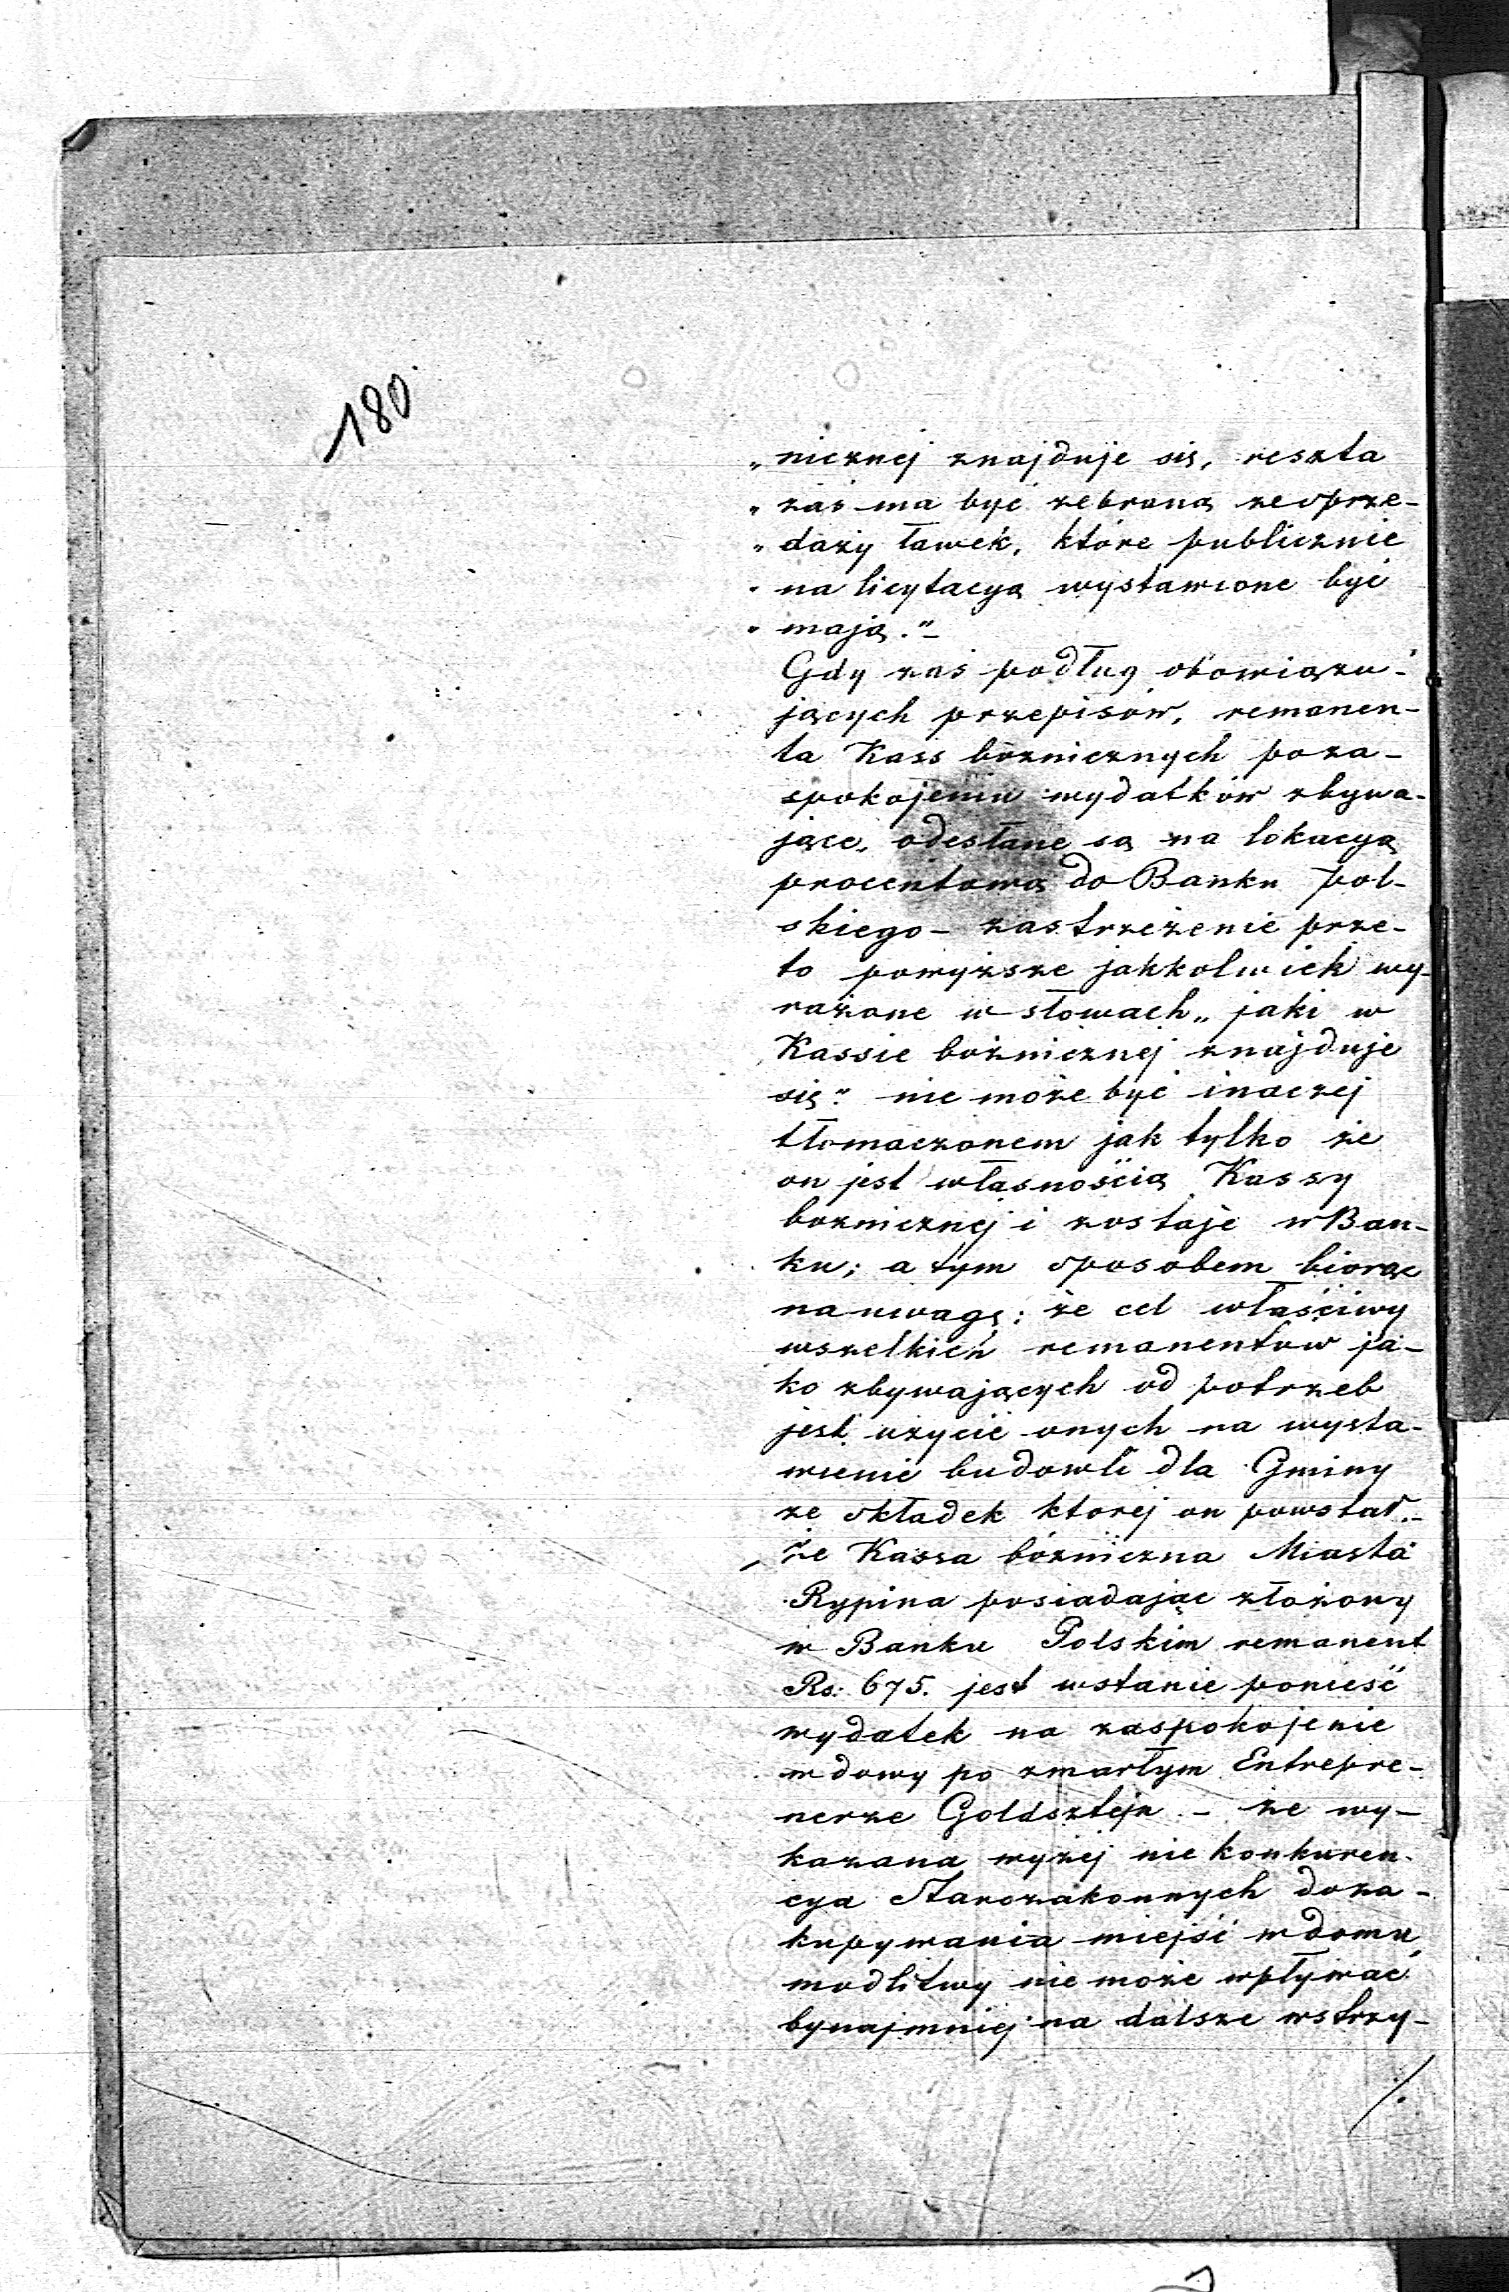 180.
„ nicznej znajduje się, reszta
„ zaś ma być zebraną ze sprze-
„ daży ławek, które publicznie
„ na licytacyą wystawione być
„ mają."-
Gdy zaś podług obowiązu-
jących przepisów, remanen-
ta Kass bóżnicznych poza-
spokojeniu wydatków zbywa-
jące, odesłane są na lokacyą
procentową do Banku pol-
skiego - zastrzeżenie prze-
to powyższe jakkolwiek wy-
rażone w słowach „ jaki w
Kassie bóżnicznej znajduje
się" nie może być inaczej
tłomaczonem jak tylko że
on jest własnością Kassy
bożnicznej i zostaje w Ban-
ku; a tym sposobem biorąc
na uwagę: że cel właściwy
wszelkich remanentow ja-
ko zbywających od potrzeb
jest użycie onych na wysta-
wienie budowli dla Gminy
ze składek ktorej on powstał.-
że Kassa bóżniczna Miasta
Rypina posiadając złożony
w Banku Polskim remanent
Rs: 675. jest wstanie ponieść
wydatek na zaspokojenie
wdowy po zmarłym Entrepre-
nerze Goldsztejn - że wy-
kazana wyżej nie konkuren-
cya Starozakonnych doza-
kupywania miejść w domu
modlitwy nie może wpływać
bynajmniej na dalsze wstrzy-
./.